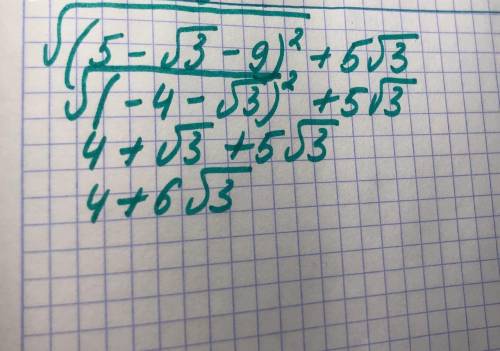 √(5 - √3 - 9)² + 5√3
√(-4 - √3)² + 5√3
4 + √3 + 5√3
4 + 6√3